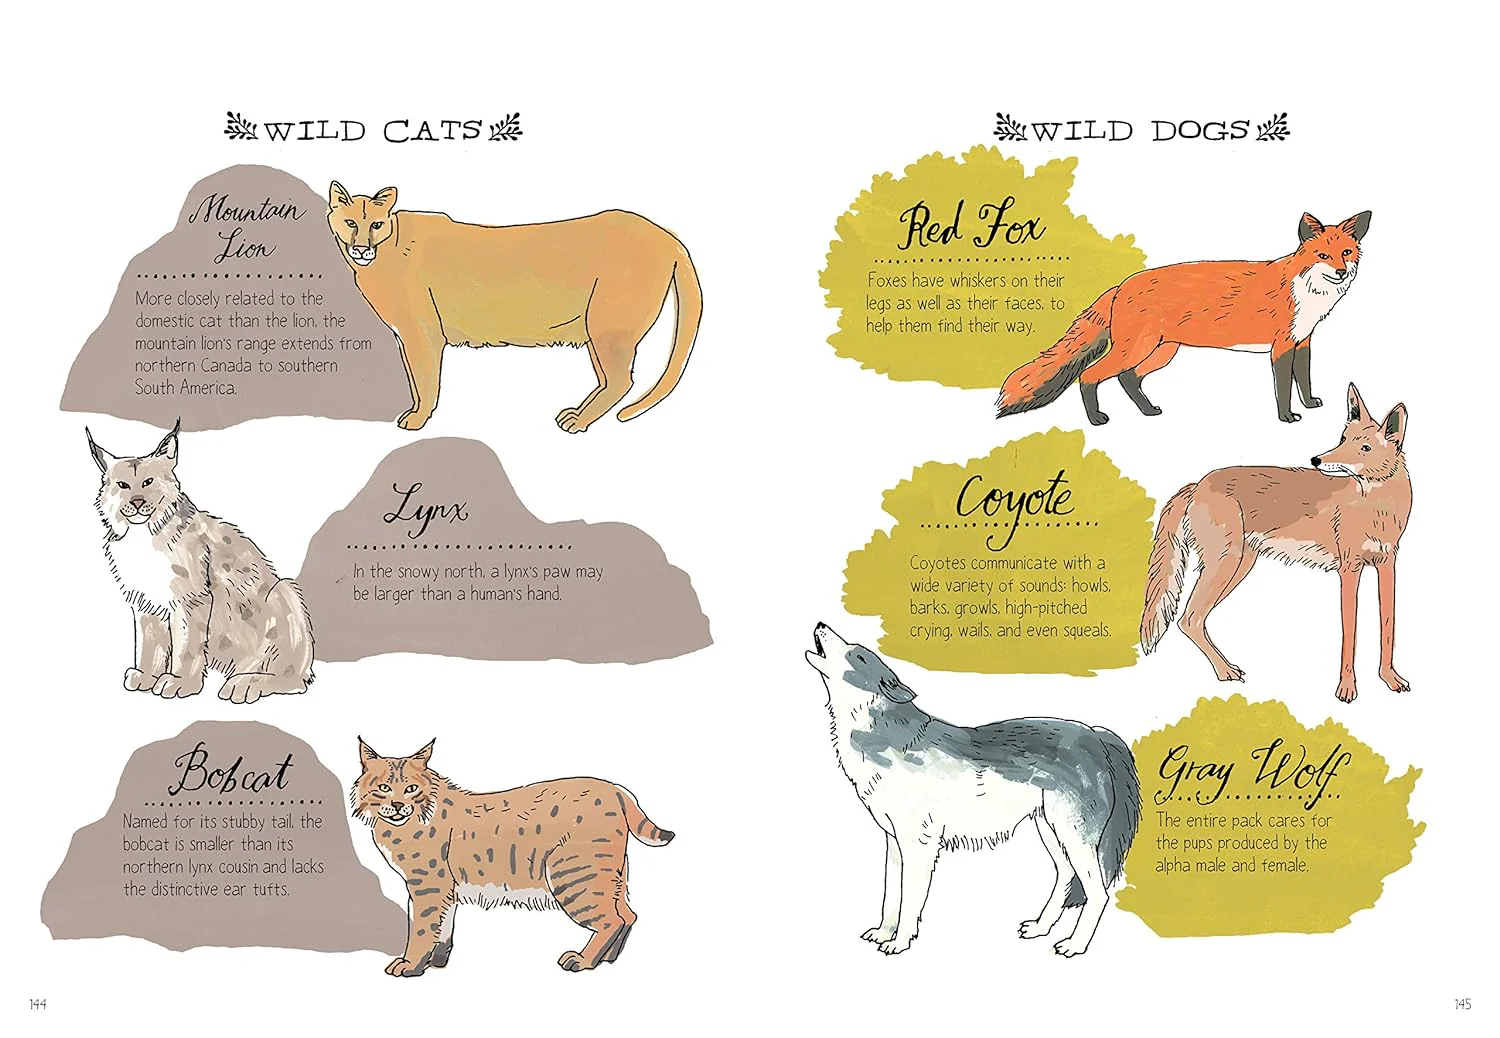 WILD CATS
Mountain
Lion
More closely related to the
domestic cat than the lion, the
mountain lion's range extends from
northern Canada to southern
South America.
Lynx
In the snowy north, a lynx's paw may
be larger than a human's hand.
Bobcat
Named for its stubby tail, the
bobcat is smaller than its
northern lynx cousin and lacks
the distinctive ear tufts.
144
WILD DOGS
Red Fox
Foxes have whiskers on their
legs as well as their faces, to
help them find their way.
Coyote
Coyotes communicate with a
wide variety of sounds: howls,
barks, growls, high-pitched
crying, wails, and even squeals.
Gray Wolf
The entire pack cares for
the pups produced by the
alpha male and female.
145